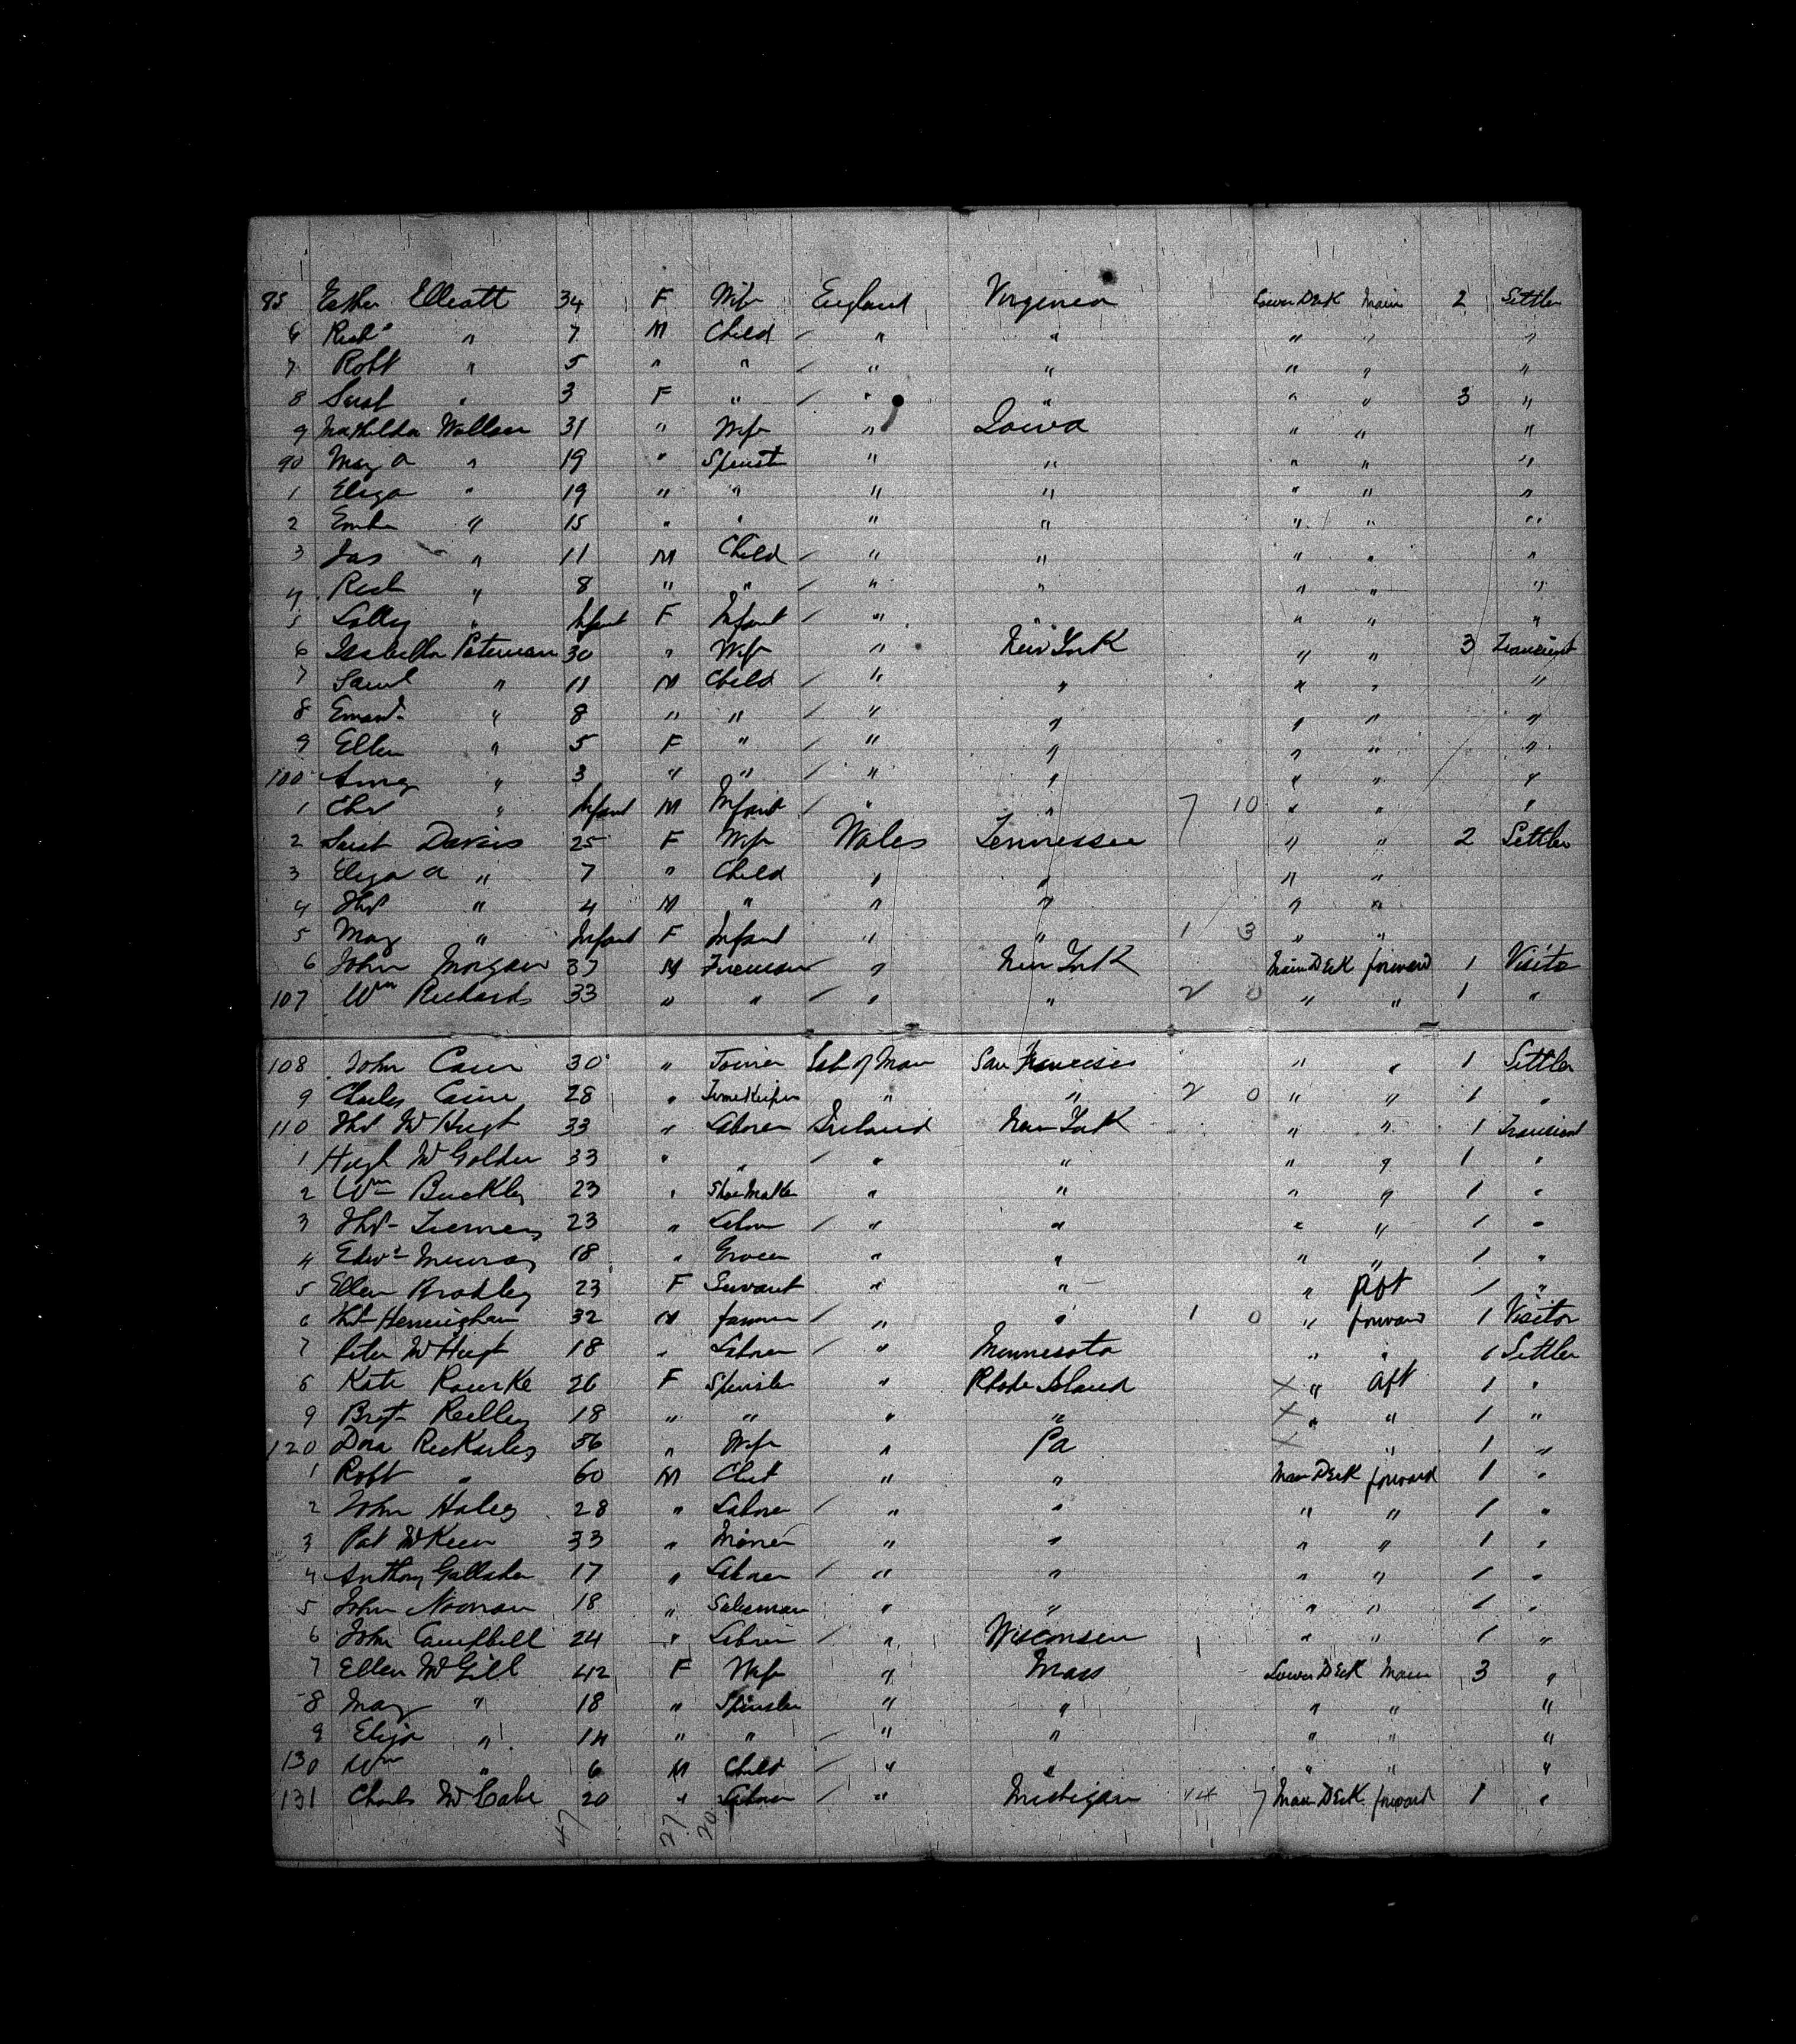 85 Esther Elliott 34 F Wife England Virginia Lower Deck Main 2 Settler
6 Richd " 7 M Child / " " " " "
7 Robt " 5 " " / " " " " "
8 Sarah " 3 F " / " " " " 3 "
9 Mathilda Wallser 31 " Wife " Iowa " " "
90 Mary A " 19 " Spinst " " " " "
1 Eliza " 19 " " " " " " "
2 Emile " 15 " " " " " " "
3 Jas " 11 M Child / " " " " "
4 Rich " 8 " " / " " " " "
5 Lolly " Infant F Infant / " " " " "
6 Isabella Pateman 30 " Wife " New York " " 3 Transient
7 Saml " 11 M Child / " " " " "
8 Emard " 8 " " / " " " " "
9 Ellen " 5 F " / " " " " "
100 Amey " 3 " " / " " " " "
1 Chs " Infant M Infant / " " 7 10 " " "
2 Sarah Davies 25 F Wife Wales Tennessee " " 2 Settler
3 Eliza A " 7 " Child " " " "
4 Thos " 4 M " " " " "
5 May " Infant F Infant " " 1 3 " "
6 John Morgan 37 M Fireman " New York Main Deck forward 1 Visitor
107 Wm Richards 33 " " / " " 2 0 " " 1 "
108 John Caser 30 " Joiner Isle of Man San Francisco " " 1 Settler
9 Charles Caine 28 " Timekeeper " " 2 0 " " 1 "
110 Thos McHugh 33 " Laborer Ireland New York " " 1 Transient
1 Hugh McGolder 33 " " / " " " " 1 "
2 Wm Buckley 23 " Shoemaker " " " " 1 "
3 Thos Tierney 23 " Labor / " " " " 1 "
4 Edwd Murray 18 " Grocer " " " " 1 "
5 Ellen Bradley 23 F Servant " " " Aft 1 "
6 Thos Hernighan 32 M farmer / " " 1 0 " forward 1 Visitor
7 Peter McHugh 18 " Laborer / " Minnesota " " 1 Settler
8 Kate Rourke 26 F Spinster " Rhode Island X " Aft 1 "
9 Bregt Reilley 18 " " " " X " " 1 "
120 Dora 56 " Wife " Pa X " 1 "
1 Robt " 60 M " " Main Deck forward 1 "
2 John Haley 28 " Laborer / " " " " 1 "
3 Pat McKeen 33 " Miner " " " " 1 "
4 Anthony Gallaher 17 " Laborer / " " " " 1 "
5 John Noonan 18 " Salesman " " " " 1 "
6 John Campbell 24 " Labrer / " Wisconsen " " 1 "
7 Ellen McGill 42 F Wife " Mass Lower Deck Main 3 "
8 May " 18 " Spinster " " " " "
9 Eliza " 14 " " / " " " " "
130 Wm " 6 M Child / " " " " "
131 Charles McCabe 20 " Labrer / " Michigan 14 7 Main Deck forward 1 "
47 27 20